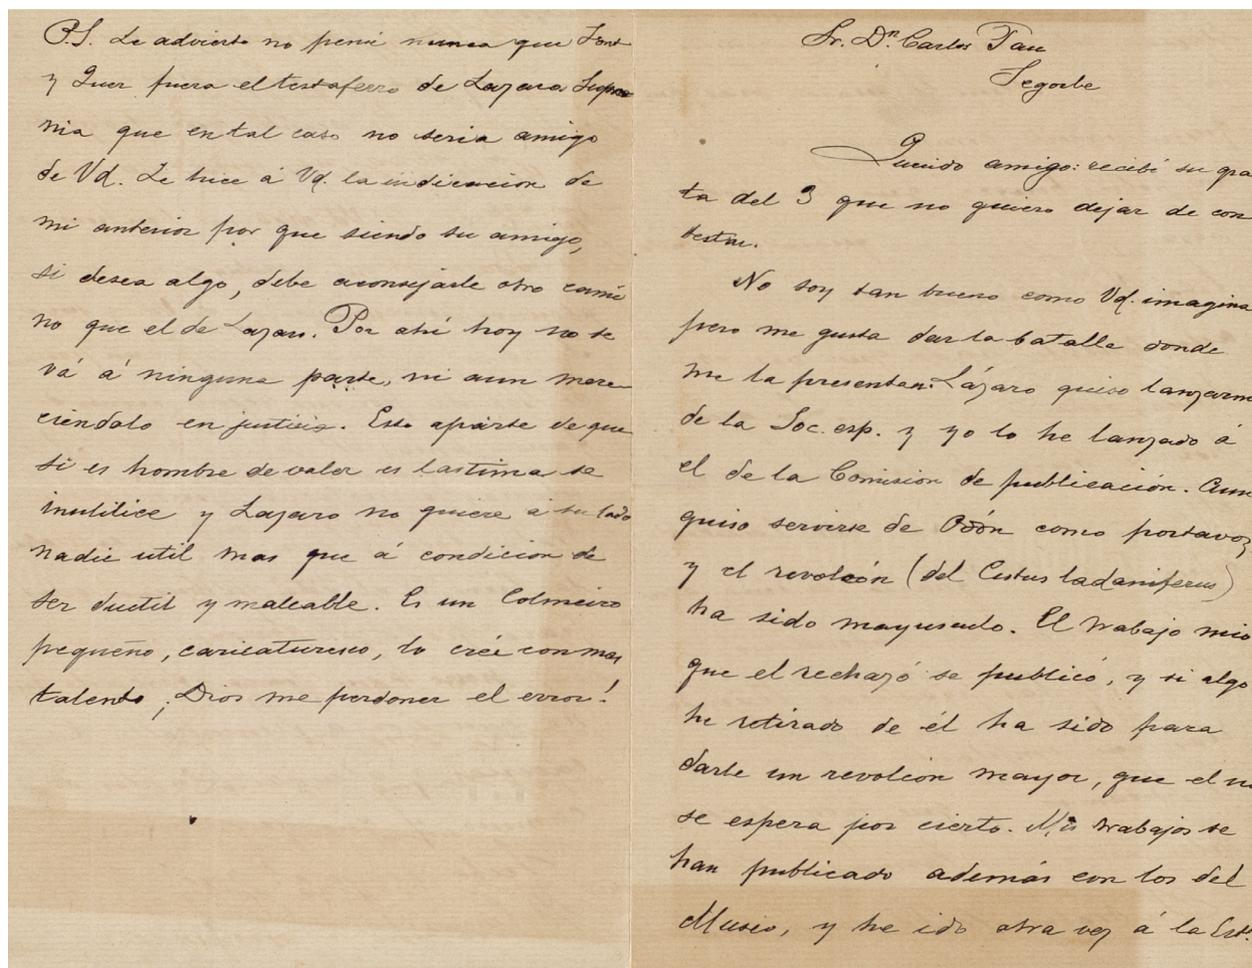 P.S. Le advierto no pensé nunca que Font
y Quer fuera el testaferro de Lázaro Supon
nia que en tal caso no seria amigo
de Vd. Le hice á Vd. la indicacion de
mi anterior por que siendo su amigo,
si desea algo, debe aconsejarle otro cami
no que el de Lazaro. Por ahí hoy no se
vá á ninguna parte, ni aun mere
ciéndolo en justicia. Esto aparte de que
si es hombre de valer es lastima se
inutilice y Lazaro no quiere á su lado
nadie util mas que á condicion de
ser ductil y maleable. Es un Colmeiro
pequeño, caricaturesco, lo creí con mas
talento ¡Dios me perdone el error!
Sr. Dn. Carlos Pau
Segorbe
Querido amigo: recibí su gra
ta del 3 que no quiero dejar de con
testar.
No soy tan bueno como Vd. imagina
pero me gusta dar la batalla donde
me la presentan. Lázaro quiso lanzarme
de la Soc. esp. y yo lo he lanzado á
el de la Comisión de publicación.
quiso servirse de Odón como portavoz
y el revolcón (del Cistus ladaniferus)
ha sido mayusculo. El trabajo mio
que el rechazó se publicó, y si algo
he retirado de él ha sido para
darle un revolcon mayor, que el no
se espera por cierto. Mis trabajos se
han publicado además con los del
Museo, y he ido otra vez á la Est.